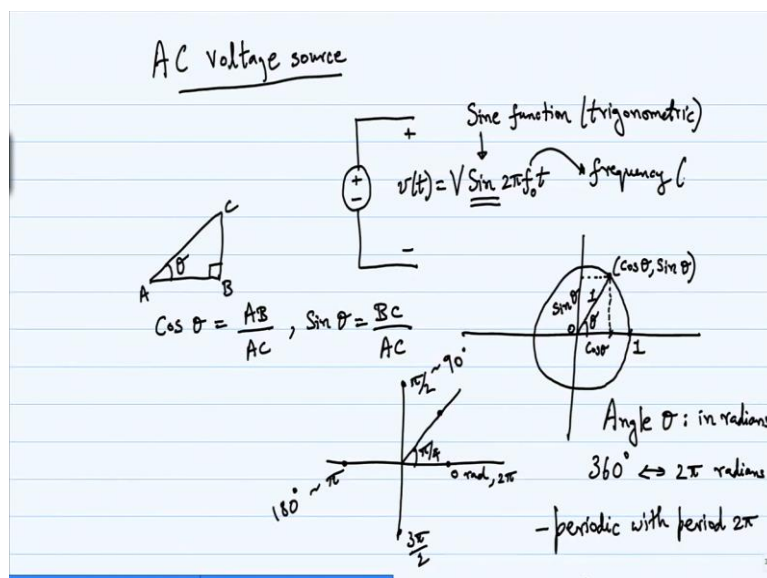 AC voltage source
Sine function (trigonometric)
+
+
-
v(t) = V Sin 2πf₀t
frequency (
-
C
θ
A
B
Cos θ = AB/AC , Sin θ = BC/AC
(cosθ, sin θ)
sinθ
1
θ
0
cosθ
1
π/2 ~ 90°
π/4
0 rad, 2π
180° ~ π
3π/2
Angle θ : in radians
360° ↔ 2π radians
- periodic with period 2π